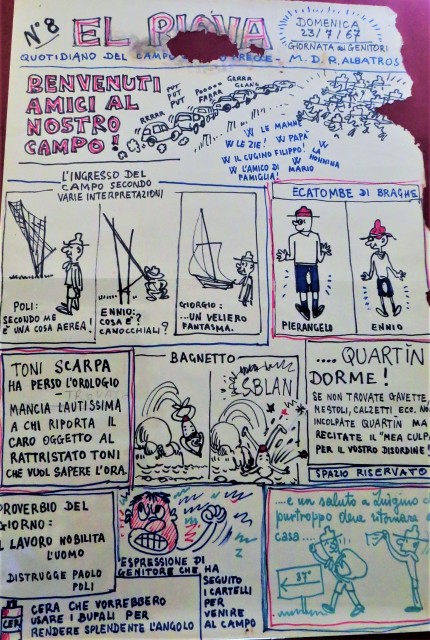 N° 8 EL PIOVA
DOMENICA
23/7/67
GIORNATA dei GENITORI
QUOTIDIANO DEL CAMPO
M.D.R. ALBATROS
BENVENUTI
AMICI AL
NOSTRO
CAMPO!
RRRRR
PUT
PUT
PUT
FARRR
GRRRR
CLANG
W LE MAMME
W LE ZIE! W PAPA'
W IL CUGINO FILIPPO! W LA NONNINA
W L'AMICO DI FAMIGLIA! W MARIO
L'INGRESSO DEL
CAMPO SECONDO
VARIE INTERPRETAZIONI
POLI:
SECONDO ME
È UNA COSA AEREA!
ENNIO:
COSA E'?
CANOCCHIALI?
GIORGIO:
...UN VELIERO
FANTASMA.
ECATOMBE DI BRAGHE
PIERANGELO
ENNIO
TONI SCARPA
HA PERSO L'OROLOGIO
MANCIA LAUTISSIMA
A CHI RIPORTA IL
CARO OGGETTO AL
RATTRISTATO TONI
CHE VUOL SAPERE L'ORA.
BAGNETTO
SBLAN
.... QUARTÌN
DORME!
SE NON TROVATE GAVETTE,
MESTOLI, CALZETTI ECC. NON
INCOLPATE QUARTÌN MA
RECITATE IL "MEA CULPA"
PER IL VOSTRO DISORDINE!
SPAZIO RISERVATO
PROVERBIO DEL
GIORNO:
IL LAVORO NOBILITA
L'UOMO
DISTRUGGE PAOLO
POLI
ESPRESSIONE DI
GENITORE CHE HA
SEGUITO
I CARTELLI
PER
VENIRE
AL CAMPO
CERA CHE VORREBBERO
USARE I BUFALI PER
RENDERE SPLENDENTE L'ANGOLO
CER
...e un saluto a Luigino che
purtroppo deve ritornare a
casa....
37°